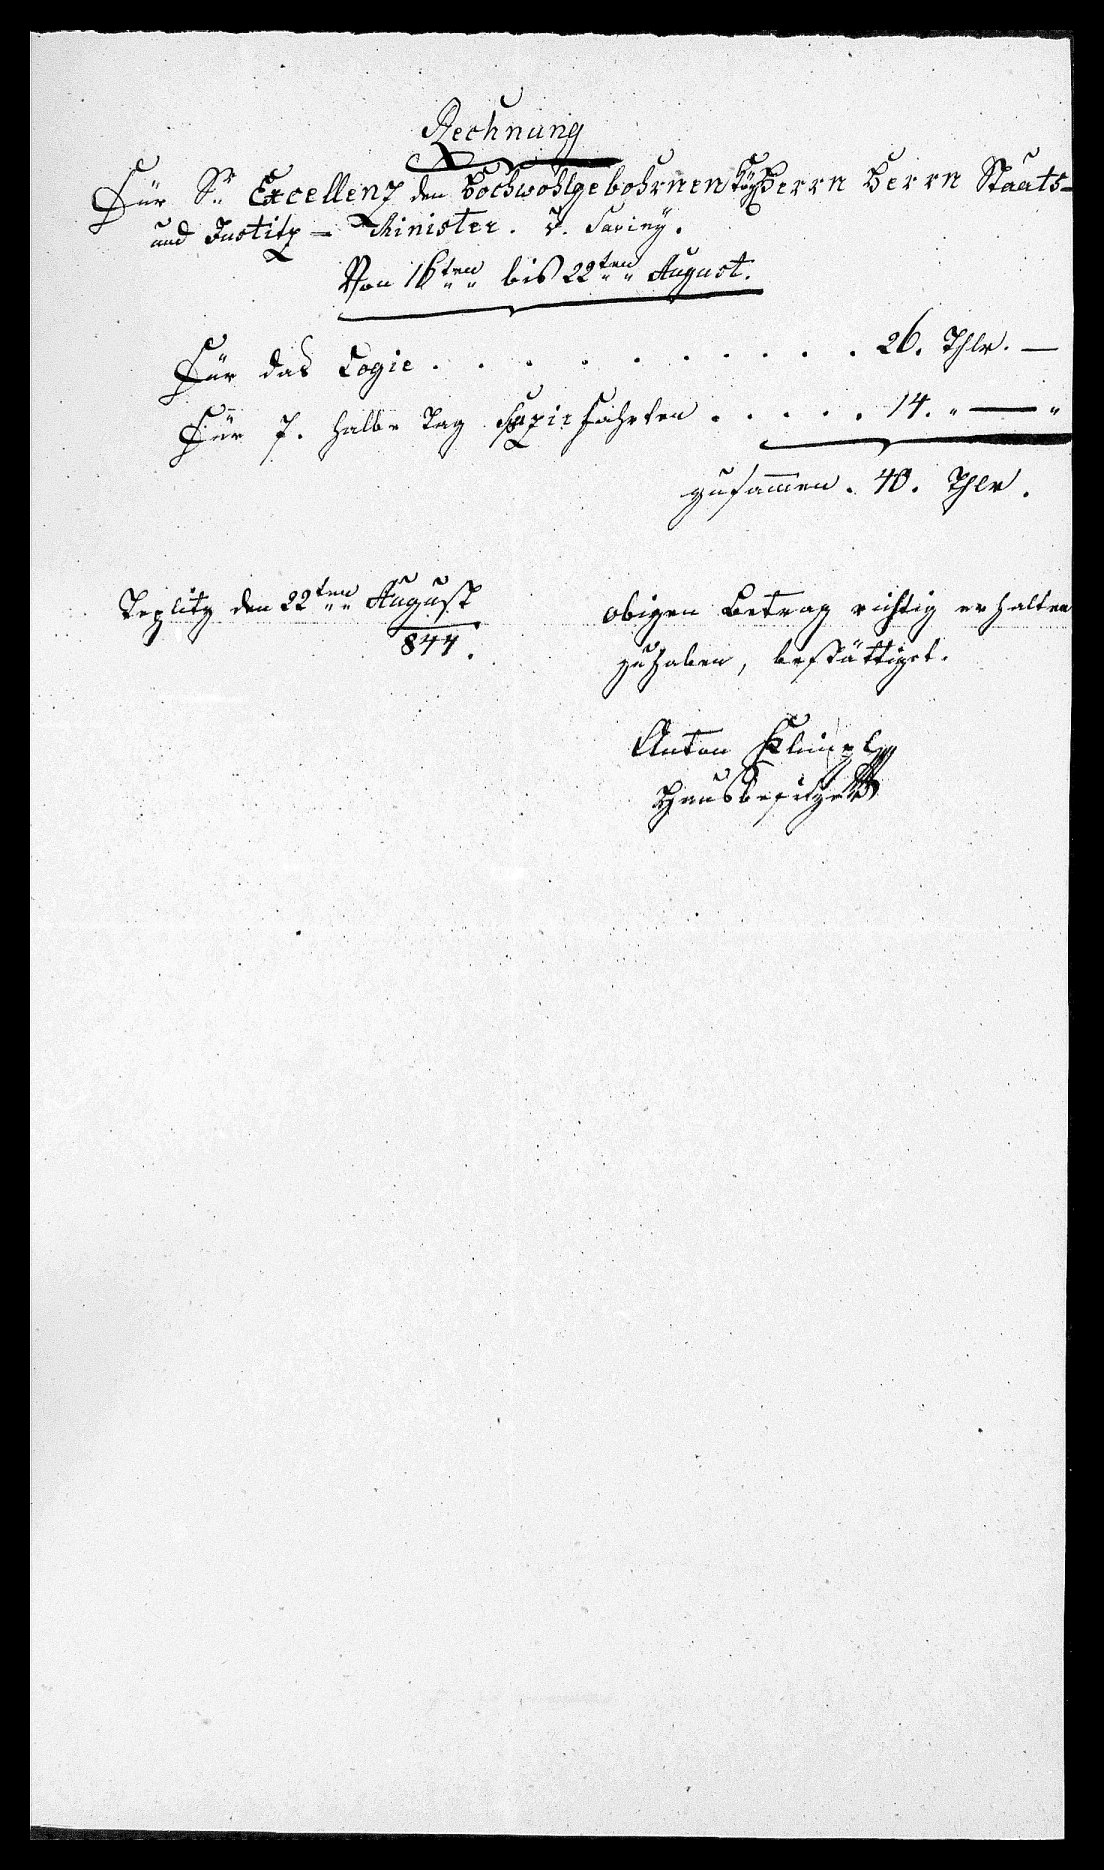 Rechnung
Für Sr. Excellenz den Hochwohlgebohrnen Herrn Herrn Staats-
und Justitz - Minister. v. Saviny.
Von 16ten bis 22ten August.
Für das Logie . . . . . . . . . 26. Thlr. —
Für 7. halbe Tag Spazierfahrten . . . . 14. „ — „
zusammen . 40. Thlr.
Teplitz den 22ten August
844.
obigen Betrag richtig erhalten
zuhaben, bestättiget.
Anton
Hausbesitzer